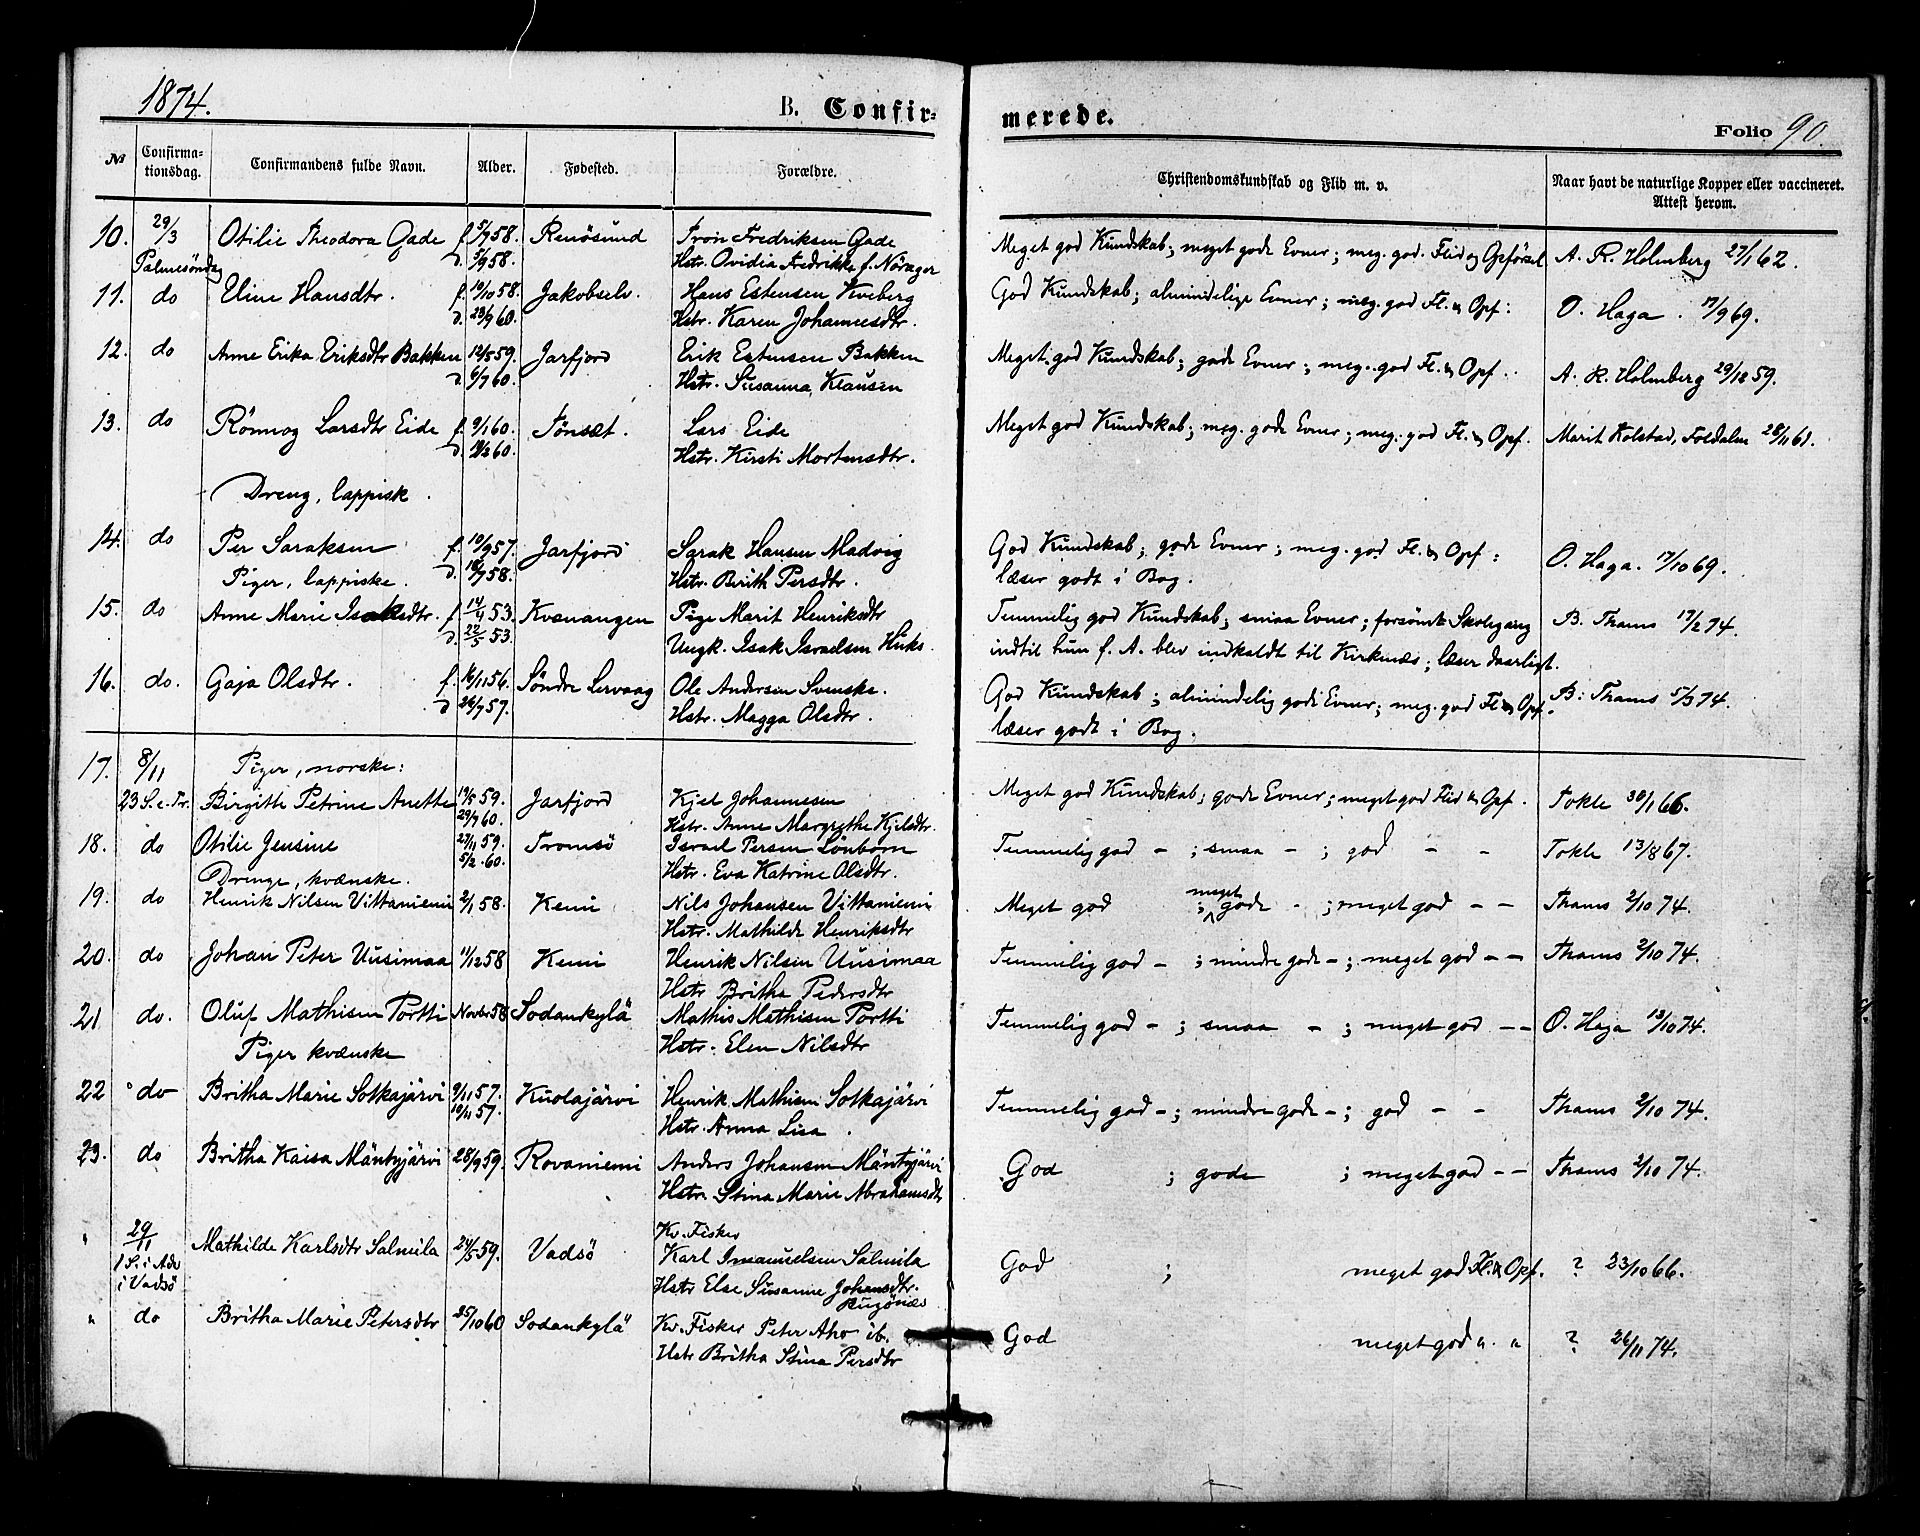 1874.
B. Confir-
merede.
Folio 90.
№ Confirmationsdag. Confirmandens fulde Navn. Alder. Fødested. Forældre. Christendomskundskab og Flid m. v. Naar havt de naturlige Kopper eller vaccineret. Attest herom.
10. 29/3 Otilie Theodora Gade f. 5/7 58. Renösund Tron Fredriksen Gade Meget god Kundskab; meget gode Evner; meg. god. Flid og Opförsel A. R. Holmberg 27/1 62.
Palmesöndag d. 5/9 58. Hstr. Ovidia Fredrikke f. Nöræger
11. do Eline Hansdtr. f. 19/10 58. Jakobselv. Hans Estensen Kveberg God Kundskab; almindelige Evner; meg. god Fl. & Opf: O. Haga. 17/9 69.
d. 23/9 60. Hstr. Karen Johannesdtr.
12. do Anne Erika Eriksdtr Bakken 12/5 59. Jarfjord Erik Estensen Bakken Meget god Kundskab; gode Evner; meg. god Fl. & Opf. A. R. Holmberg 29/12 59.
d. 6/7 60. Hstr. Susanna Klausen
13. do Rönnog Larsdtr Eide f. 9/1 60. Tönset. Lars Eide Meget god Kundskab; meg. gode Evner; meg. god Fl. & Opf. Marit Kolstad, Foldalen 28/11 61.
d. 19/2 60. Hstr. Kirsti Mortensdtr.
Dreng, lappisk.
14. do Per Saraksen f. 10/9 57. Jarfjord Sarak Hansen Madvig God Kundskab; gode Evner; meg. god Fl. & Opf: O. Haga. 17/10 69.
Piger, lappiske. d. 18/7 58. Hstr. Brith Persdtr. læser godt i Bog.
15. do Anne Marie Isaksdtr. f. 14/4 53. Kvænangen Pige Marit Henriksdtr Temmelig god Kundskab; smaa Evner; forsömt Skolegang B. Thams 17/2 74.
d. 22/5 53. Ungk. Isak Israelsen Huks. indtil hun f. A. blev indkaldt til Kirkenæs; læser daarligt.
16. do. Gaja Olsdtr. f. 16/11 56. Söndre Lervaag Ole Andersen Svenske. God Kundskab; almindelig gode Evner; meg. god Fl & Opf. B. Thams 5/3 74.
d 26/7 57. Hstr. Magga Olsdtr. læser godt i Bog.
17. 8/11 Piger, norske:
23 S. e. Tr. Birgitte Petrine Anette 19/5 59. Jarfjord Kjel Johannesen Meget god Kundskab; gode Evner; meget god Flid & Opf. Tokle 30/1 66.
29/7 60. Hstr. Anne Margrethe Kjelsdtr.
18. do Otilie Jensine 27/11 59. Tromsö Israel Persen Lönborn Temmelig god - ; smaa - ; god - - Tokle 13/8 67.
Drenge, kvænske. 5/2 60. Hstr. Eva Katrine Olsdtr.
19. do Henrik Nilsen Vittaniemi 2/1 58. Kemi Nils Johansen Vittaniemi Meget god ; meget gode - ; meget god - - Thams 2/10 74.
Hstr. Mathilde Henriksdtr
20. do Johan Peter Uusimaa 11/12 58 Kemi Henrik Nilsen Uusimaa Temmelig god - ; mindre gode - ; meget god - - Thams 2/10 74.
Hstr Britha Pedersdtr
21 do. Oluf Mathisen Portti Novbr 58 Sodankylä Mathis Mathisen Portti Temmelig god - ; smaa - ; meget god - - O. Haga 13/10 74.
Piger kvænske Hstr. Elen Nilsdtr
22 do Britha Marie Sotkajärvi 9/11 57. Kuolajärvi Henrik Mathisen Sotkajärvi Temmelig god - ; mindre gode - ; god - - Thams 2/10 74.
10/11 57. Hstr. Anna Lisa.
23. do Britha Kaisa Mäntyjärvi 28/9 59. Rovaniemi Anders Johansen Mäntyjärvi God ; gode ; meget god - - Thams 2/10 74.
Hstr. Stina Marie Abrahamsdtr
" 29/11 Mathilde Karlsdtr Salmila 24/5 59. Vadsö Kv. Fisker
1 S. i Adv. Karl Imanuelsen Salmila God ; meget god Fl. & Opf. ? 23/10 66.
i Vadsö Hstr Else Susanne Johansdtr.
Bugönæs
" do Britha Marie Petersdtr 25/10 60 Sodankylä Kv. Fisker Peter Aho ib. God meget god " " ? 26/11 74.
Hstr Britha Stina Persdtr